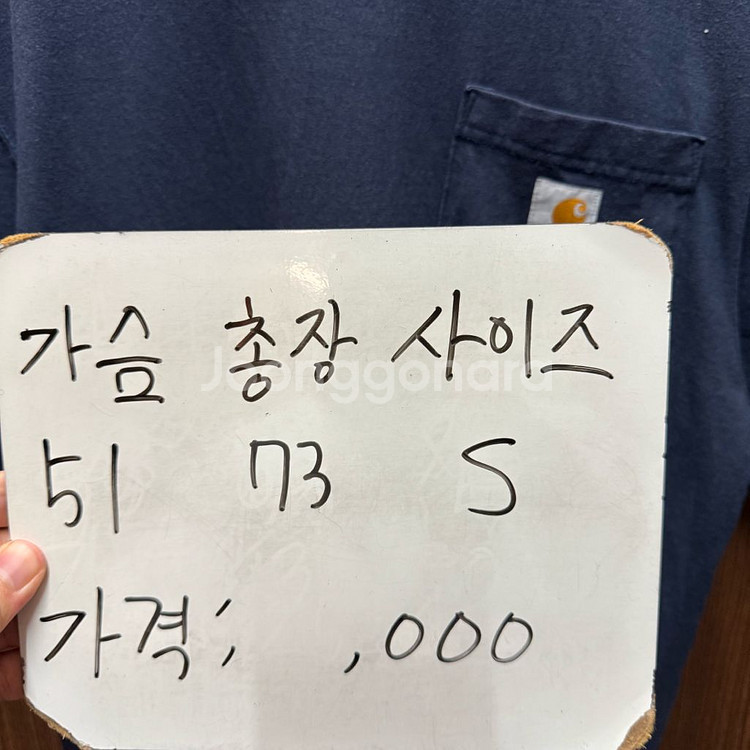 가슴 총장 사이즈
Joonggonara
51 73 S
가격; ,000